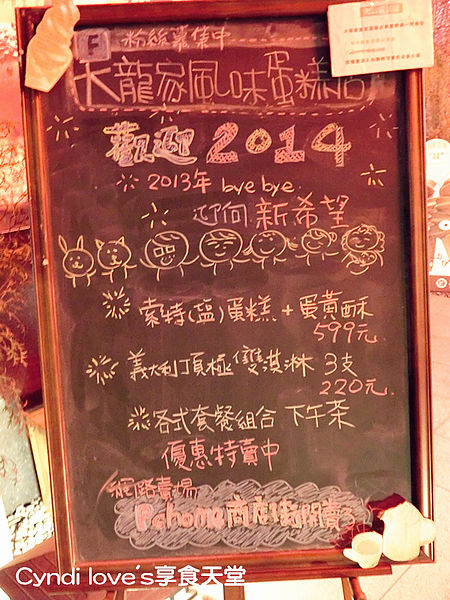 F 粉絲募集中
大龍家風味蛋糕店
歡迎2014
2013年 bye bye
迎向 新希望
索特(鹽)蛋糕 + 蛋黃酥
599元
義大利頂極雙淇淋 3支
220元
各式套餐組合 下午茶
優惠特賣中
網路賣場
Pchome商店街開賣了
Cyndi love's享食天堂